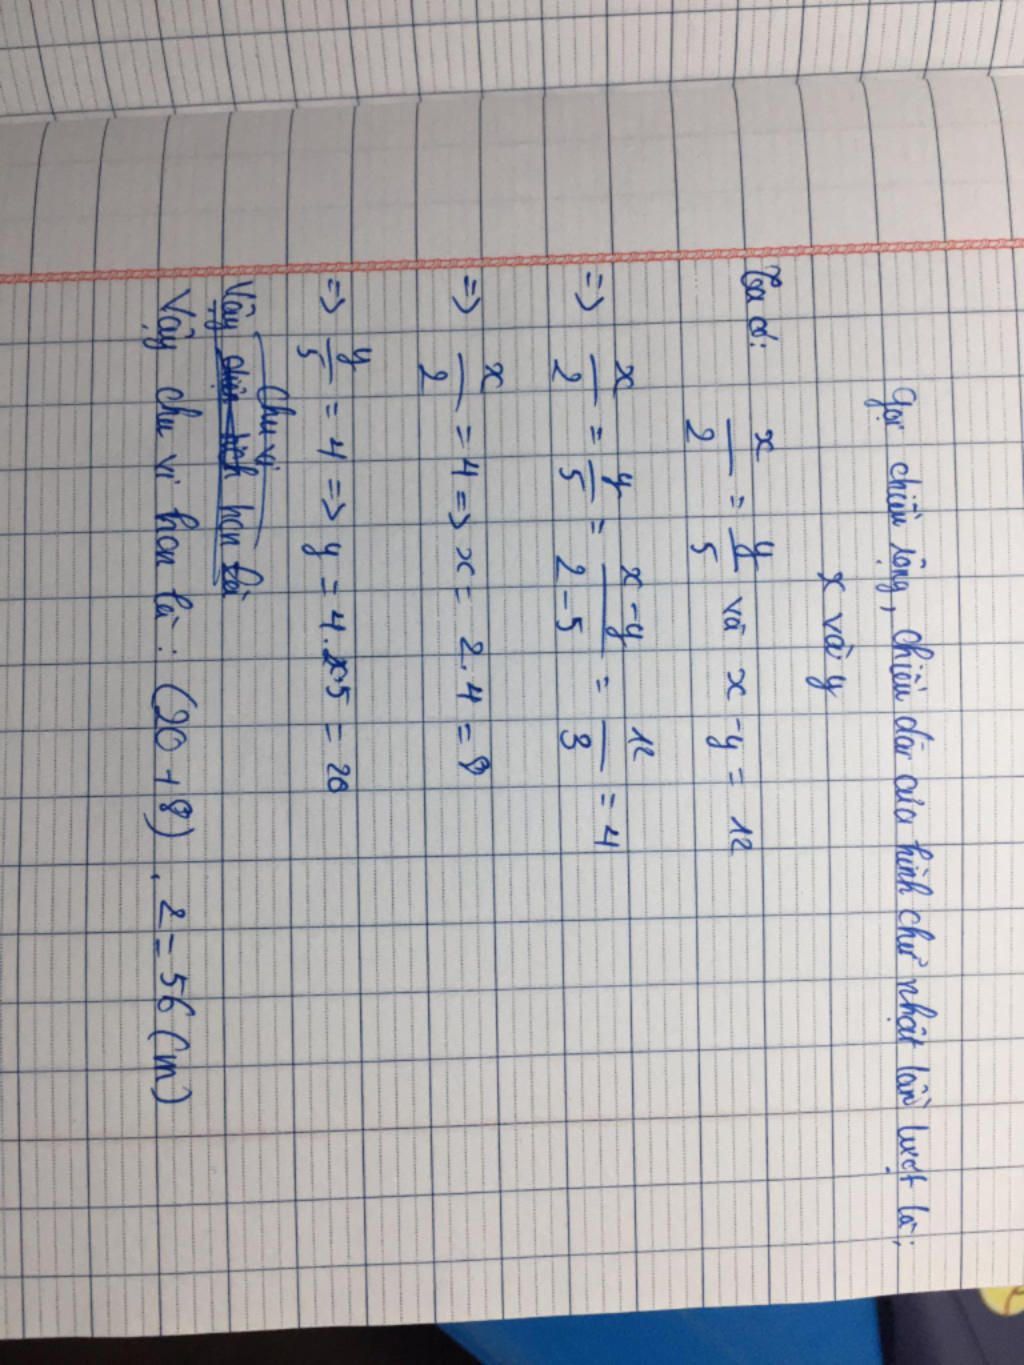 Gọi chiều rộng, chiều dài của hình chữ nhật lần lượt là:
x và y
Ta có: x/2 = y/5 và x - y = 12
=> x/2 = y/5 = x-y/2-5 = 12/3 = 4
=> x/2 = 4 => x = 2.4 = 8
=> y/5 = 4 => y = 4.5 = 20
chu vi
Vậy hcn là
Vậy chu vi hcn là: (20 + 8) . 2 = 56 (m)